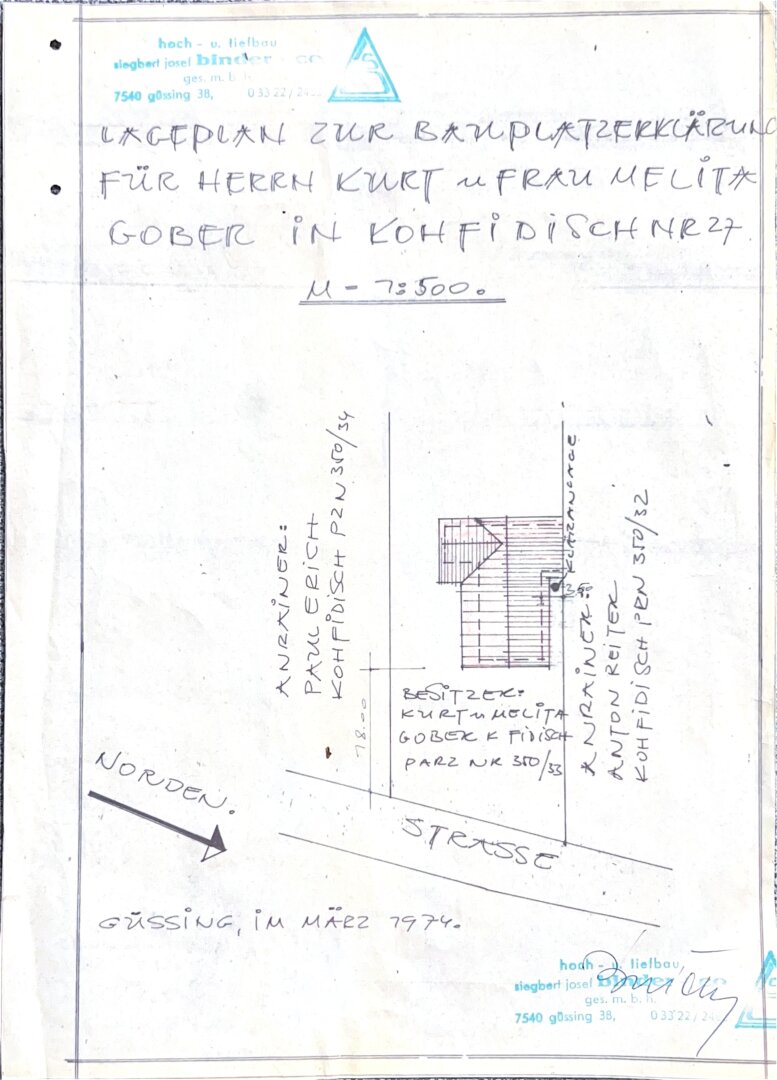 hoch - u. tiefbau
siegbert josef binder co
ges. m. b. h.
7540 güssing 38, 03322/24
LAGEPLAN ZUR BAUPLATZERKLÄRUNG
FÜR HERRN KURT u FRAU MELITA
GOBER IN KOHFIDISCH NR 27
M - 1:500.
ANRAINER:
PAUL ERICH
KOHFIDISCH PZN 350/34
KLÄRANLAGE
3,50
ANRAINER:
ANTON REITER
KOHFIDISCH PRN 350/32
BESITZER:
KURT u MELITA
GOBER K FIDISCH
PARZ NR 350/33
18.00
NORDEN.
STRASSE
GÜSSING, IM MÄRZ 1974.
hoch - u. tiefbau
siegbert josef binder co
ges. m. b. h.
7540 güssing 38, 03322/24